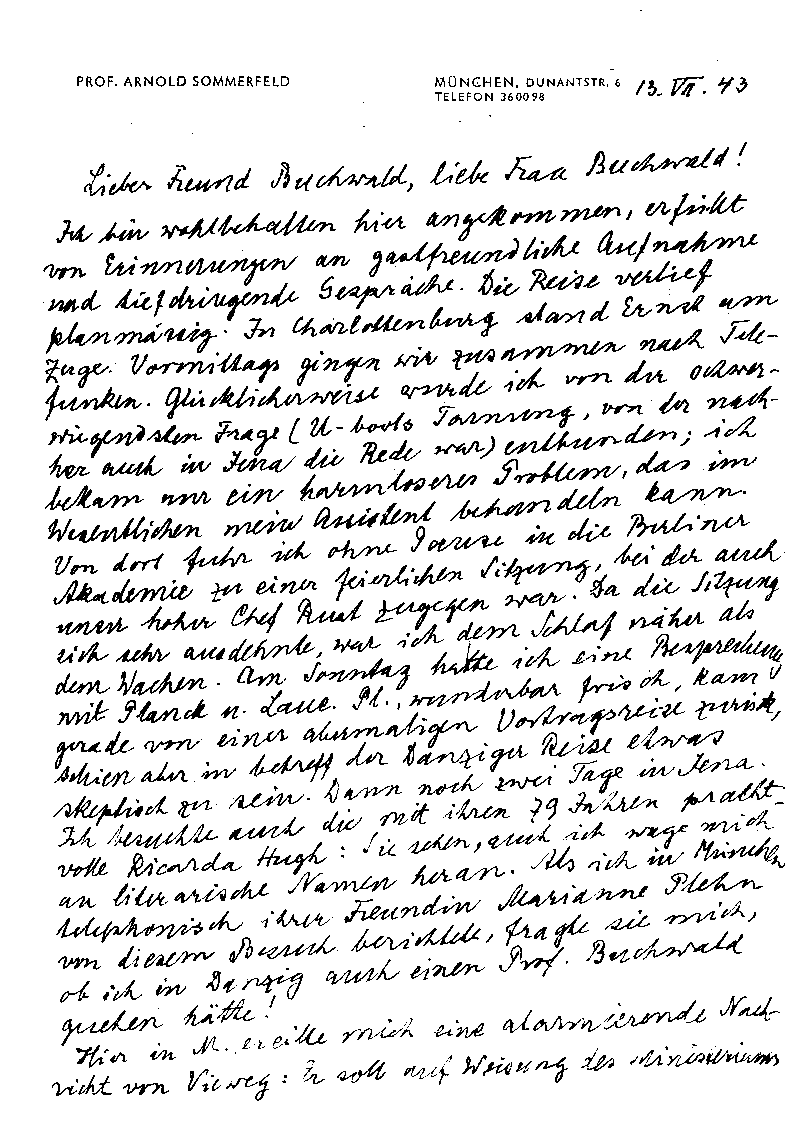 PROF. ARNOLD SOMMERFELD
MÜNCHEN, DUNANTSTR. 6 13. VII. 43
TELEFON 360098
Lieber Freund Buchwald, liebe Frau Buchwald!
Ich bin wohlbehalten hier angekommen, erfüllt
von Erinnerungen an gastfreundliche Aufnahme
und tiefdringende Gespräche. Die Reise verlief
planmässig. In Charlottenburg stand Ernst am
Zuge. Vormittags gingen wir zusammen nach Tele-
funken. Glücklicherweise wurde ich von der schwer-
wiegendsten Frage (U-boots Tarnung, von der nach-
her auch in Jena die Rede war) entbunden; ich
bekam nur ein harmloseres Problem, das im
Wesentlichen mein Assistent behandeln kann.
Von dort fuhr ich ohne Pause in die Berliner
Akademie zu einer feierlichen Sitzung, bei der auch
unser hoher Chef Rust zugegen war. Da die Sitzung
sich sehr ausdehnte, war ich dem Schlaf näher als
dem Wachen. Am Sonntag hatte ich eine Besprechung
mit Planck u. Laue. Pl., wunderbar frisch, kam
gerade von einer abermaligen Vortragsreise zurück,
schien aber in betreff der Danziger Reise etwas
skeptisch zu sein. Dann noch zwei Tage in Jena.
Ich besuchte auch die mit ihren 79 Jahren pracht-
volle Ricarda Hugh: Sie sehen, auch ich wage mich
an literarische Namen heran. Als ich in München
telephonisch ihrer Freundin Marianne Plehn
von diesem Besuch berichtete, fragte sie mich,
ob ich in Danzig auch einen Prof. Buchwald
gesehen hätte!
Hier in M. ereilte mich eine alarmierende Nach-
richt von Vieweg: Er soll auf Weisung des Ministeriums